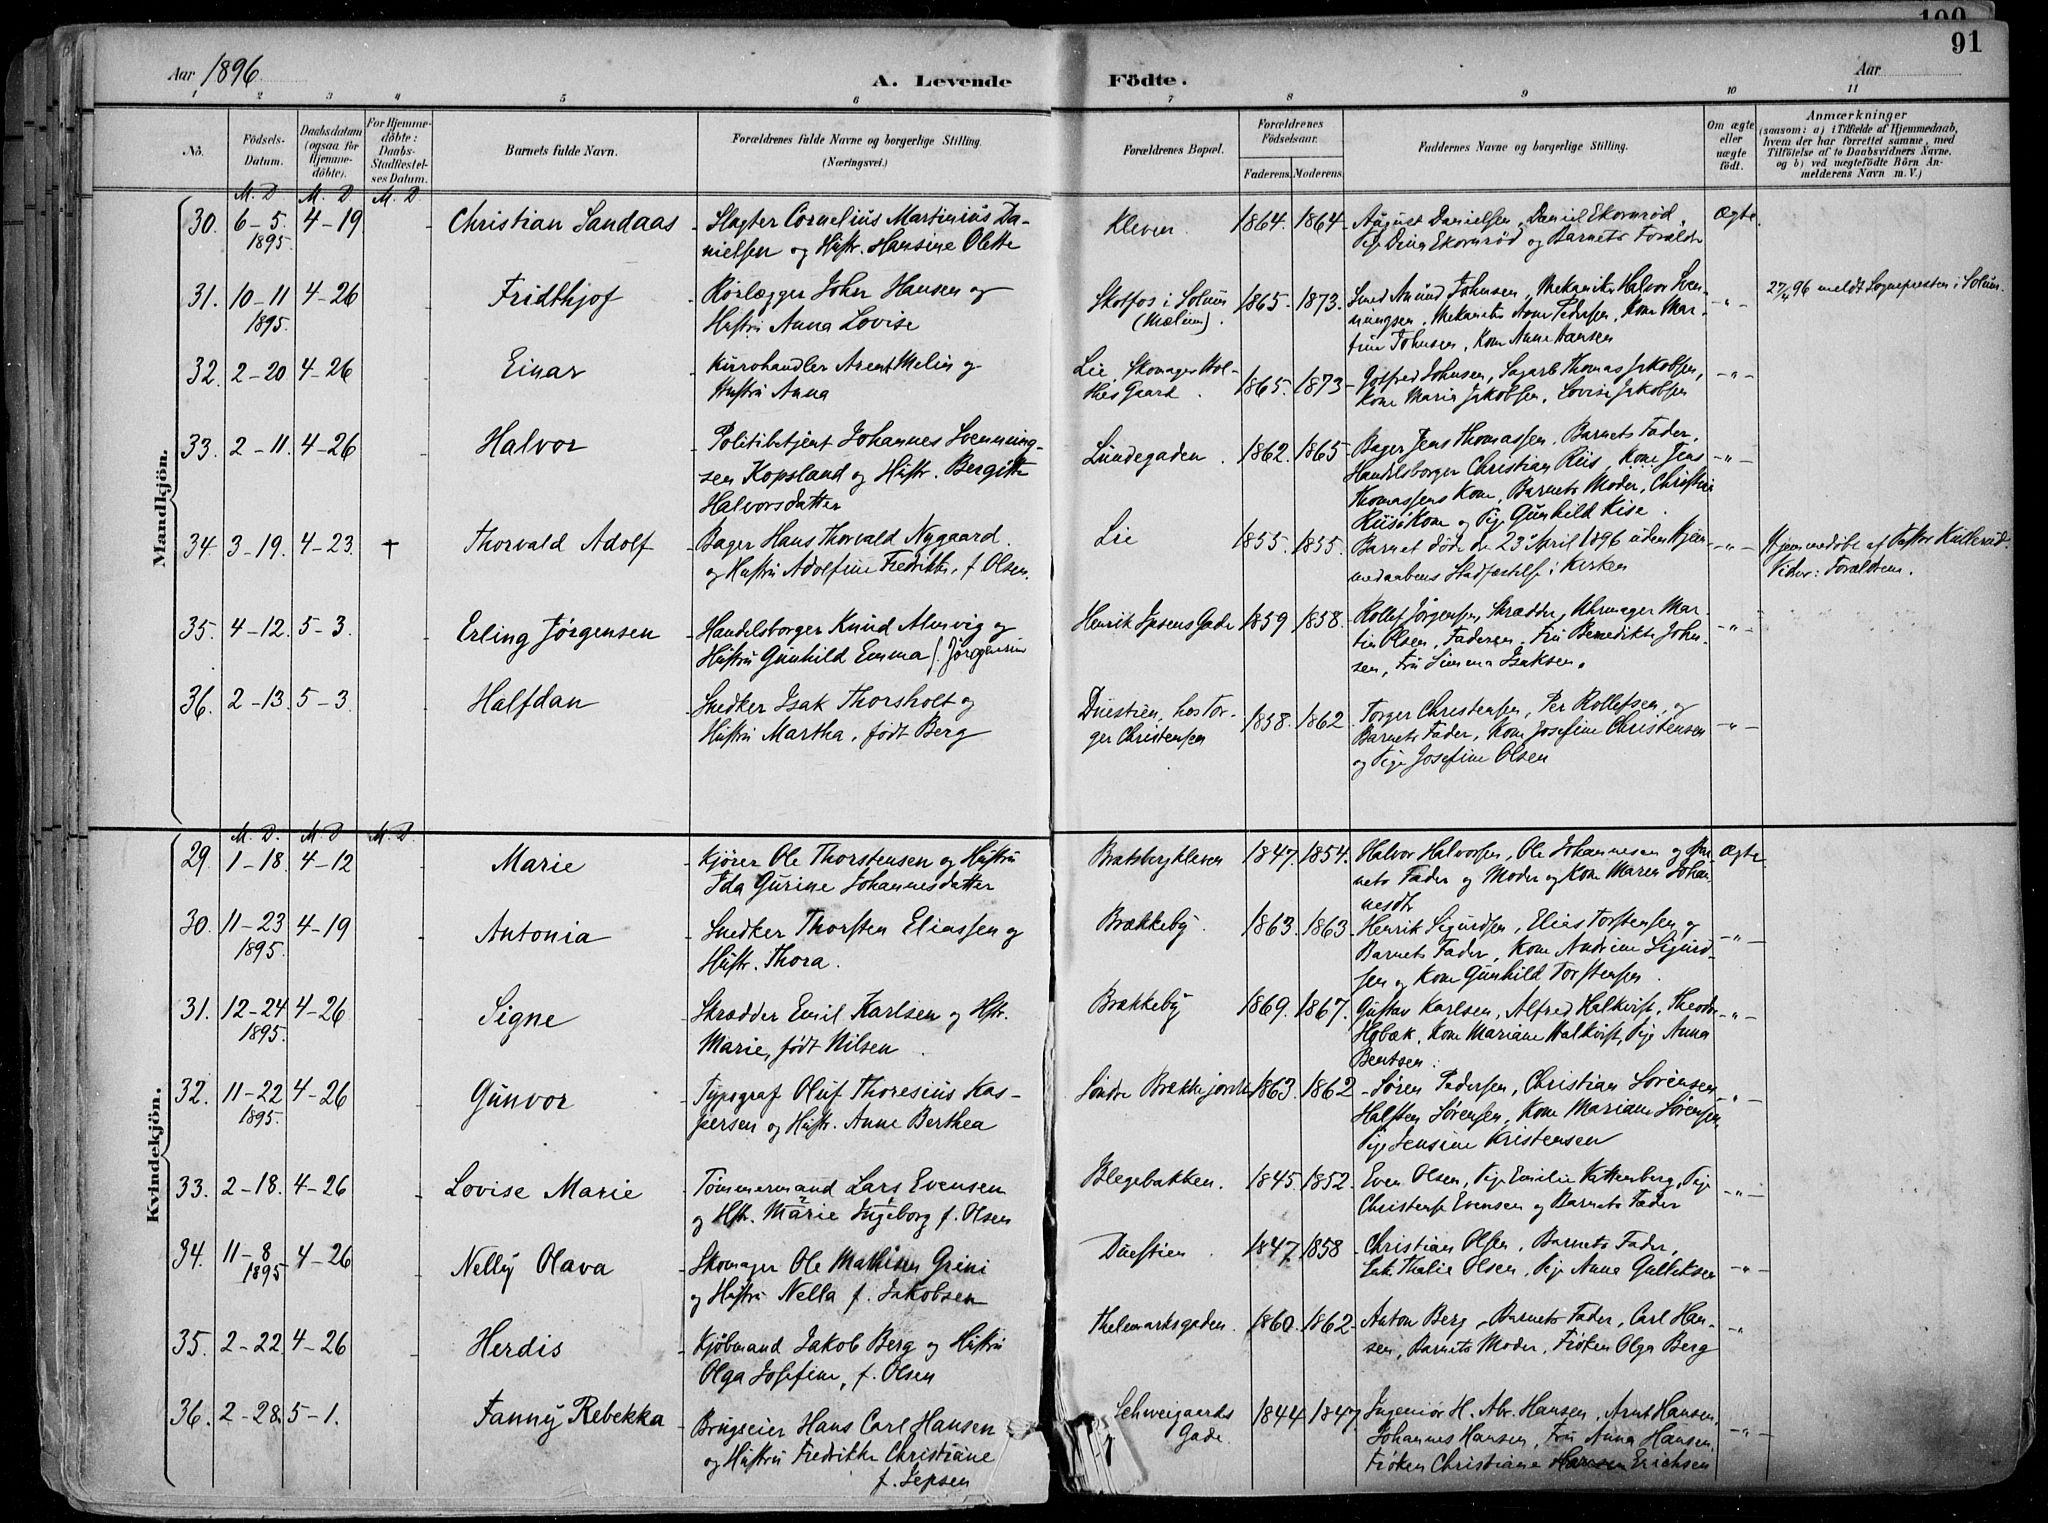 100
91
Aar 1896
A. Levende Födte.
Aar
1 2 3 4 5 6 7 8 9 10 11
No.
Födsels-Datum.
Daabsdatum (ogsaa for Hjemmedöbte).
For Hjemmedöbte: Daabs-Stadfæstelses Datum.
Barnets fulde Navn.
Forældrenes fulde Navne og borgerlige Stilling.
(Næringsvei.)
Forældrenes Bopæl.
Forældrenes Födselsaar.
Faderens. Moderens.
Faddernes Navne og borgerlige Stilling.
Om ægte eller uægte födt.
Anmærkninger
(saasom: a) i Tilfælde af Hjemmedaab, hvem der har forrettet samme, med Tilföielse af to Daabsvidners Navne. og b) ved uegtefödte Börn Anmelderens Navn m. V.)
Mandkjön.
M. D. M. D. M. D
30. 6-5. 1895. 4-19 - Christian Sandaas
- Slagter Cornelius Martinius Da-
nielsen og Hustr. Hansine Olette
Kleven. 1864. 1864-
August Danielsen, Daniel Ekornrød,
Pige Dina Ekornrød og Barnets Forældre
Ægte.
31. 10-11 1895. 4-26 - Fridthjof
- Rörlægger John Hansen og
Hustru Anna Lovise
Skotfos i Solum
(Mælum). 1865- 1873.
Smed Amund Johnsen, Mekaniker Halvor Sven-
ningsen, Mekanets Kone Pedersen, Kone Mar-
tine Johnsen, Kone Anne Hansen
-"-
27/4 96 meldt Sognepresten i Solum.
32. 2-20 4-26 - Einar
- Kurvhandler Arent Melin og
Hustru Anna
Lie, Skomager Hol-
thes Gaard. 1865. 1873-
Gotfred Johnsen, Sagarb Thomas Jakobsen,
Kone Marie Jakobsen, Lovise Jakobsen
-"-
33. 2-11. 4-26 - Halvor
- Politibetjent Johannes Svenning-
sen Kopsland og Hustr. Bergitte
Halvorsdatter
Lundegaden. 1862. 1865-
Bager Jens Thomassen, Barnets Fader,
Handelsborger Christian Riis, Kone Jens
Thomassens Kone, Barnets Moder, Christian
Riis' Kone og Pige Gunhild Kise.
-"-
34. 3-19. 4-23. † Thorvald Adolf
- Bager Hans Thorvald Nygaard
og Hustru Adolfine Fredrikke, f. Olsen.
Lie 1855. 1855.
Barnet döde den 23 April 1896 uden Hjem-
medaabens Stadfæstelse i Kirken
-"-
Hjemmedöbt af Pastor Kullerud.
Vidner: Forældrene.
35. 4-12. 5-3. - Erling Jørgensen
- Handelsborger Knud Almvig og
Hustru Gunhild Emma f. Jørgensen
Henrik Ipsens Gade 1859 1858.
Rollef Jörgensen, Skrædder, Uhrmager Mar-
tin Olsen, Faderen, Fru Benedikte John-
sen, Fru Simma Isaksen.
-"-
36. 2-13. 5-3. - Halfdan
- Snedker Isak Thorsholt og
Hustru Martha, født Berg
Duestien, hos Tor-
ger Christensen 1858. 1862
Torger Christensen, Per Rollefsen, og
Barnets Fader, Kone Josefine Christensen
og Pige Josefine Olsen
-"-
Kvindekjön.
M. D. M. D M. D
29. 1-18. 4-12 - Marie
- Kjører Ole Thorstensen og Hustru
Ida Gurine Johannesdatter
Bratsbergkleven 1847. 1854.
Halvor Halvorsen, Ole Johannesen og Bar-
nets Fader og Moder og Kone Maren Johan-
nesdtr
Ægte
30. 11-23 1895. 4-19 - Antonia
- Snedker Thorsten Eliassen og
Hustr. Thora.
Brækkeby. 1863. 1863-
Henrik Sigurdsen, Elias Torstensen og
Barnets Fader, Kone Andrine Sigurd-
sen og Kone Gunhild Torstensen.
-"-
31. 12-24 1895. 4-26 - Signe
- Skrædder Emil Karlsen og Hstr.
Marie, født Nilsen
Brækkeby 1869. 1867.
Gustav Karlsen, Alfred Halkvist, Theodor
Høbæk, Kone Mariane Halkvist, Pige Anna
Bentsen.
-"-
32. 11-22 1895. 4-26 - Gunvor
- Typograf Oluf Thoresius Kas-
persen og Hustr. Anne Berthea
Söndre Brækkejordet 1863. 1862
- Søren Pedersen, Christian Sørensen
Halften Sørensen, Kone Mariane Sørensen,
Pige Jensine Kristensen
-"-
33. 2-18. 4-26 - Lovise Marie
- Tømmermand Lars Evensen
og Hstr. Marie Ingeborg f. Olsen
Blegebakken. 1845. 1852.
Even Olsen, Pige Emilie Kattenberg, Pige
Christense Evensen og Barnets Fader
-"-
34. 11-8 1895 4-26 - Nelly Olava
- Skomager Ole Mathisen Grini
og Hustru Nella f. Jakobsen
Duestien. 1847. 1858
- Christian Olsen, Barnets Fader,
Enke Thalie Olsen, Pige Anne Gulliksen
-"-
35. 2-22. 4-26 - Herdis
- Kjöbmand Jakob Berg og Hustru
Olga Josefine, f. Olsen
Thelemarksgaden. 1860. 1862-
Anton Berg, Barnets Fader, Carl Han-
sen, Barnets Moder, Frøken Olga Berg
-"-
36. 2-28. 5-1. Fanny Rebekka
- Brugseier Hans Carl Hansen
og Hustru Fredrikke Christiane
f. Jepsen
Schweigaards
Gade. 1844 1847.
Ingeniör H. Abr. Hansen, Arnt Hansen,
Johannes Hansen, Fru Anna Hansen,
Frøken Christiane Hansen Erichsen
-"-